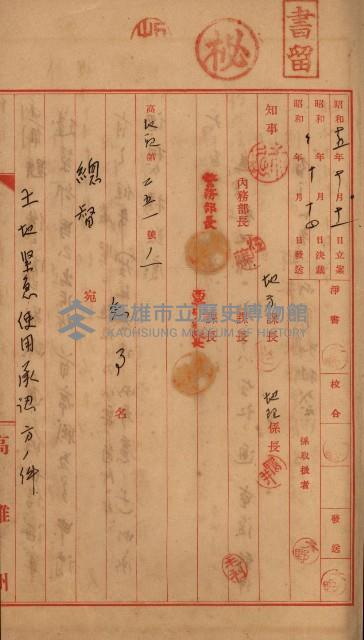 書留
秘
昭和十五年十月十二日立案
昭和 年 月 日決裁
昭和 年十月十四日發送
淨書
校合
發送
係取扱者
知事
內務部長
警務部長
地方課長
課長
課長
地理係長
高地理第二五一號ノ一
知事名
總督 宛
土地緊急使用承認方ノ件
高雄州
高雄市立歷史博物館
KAOHSIUNG MUSEUM OF HISTORY